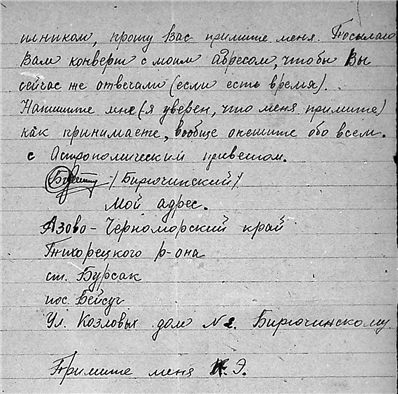 пником, прошу Вас примите меня. Посылаю
Вам конверт с моим адресом, чтобы Вы
сейчас же отвечали (если есть время).
Напишите мне (я уверен, что меня примите)
как принимаете, вообще опешите обо всем.
с Астрономическим приветом.
/Бирючинский/
Мой адрес.
Азово-Черноморский край
Тихорецкого р-она
ст. Бурсак
пос. Бейсуг
Ул. Козловых дом № 2. Бирючинскому
Примите меня К.Э.